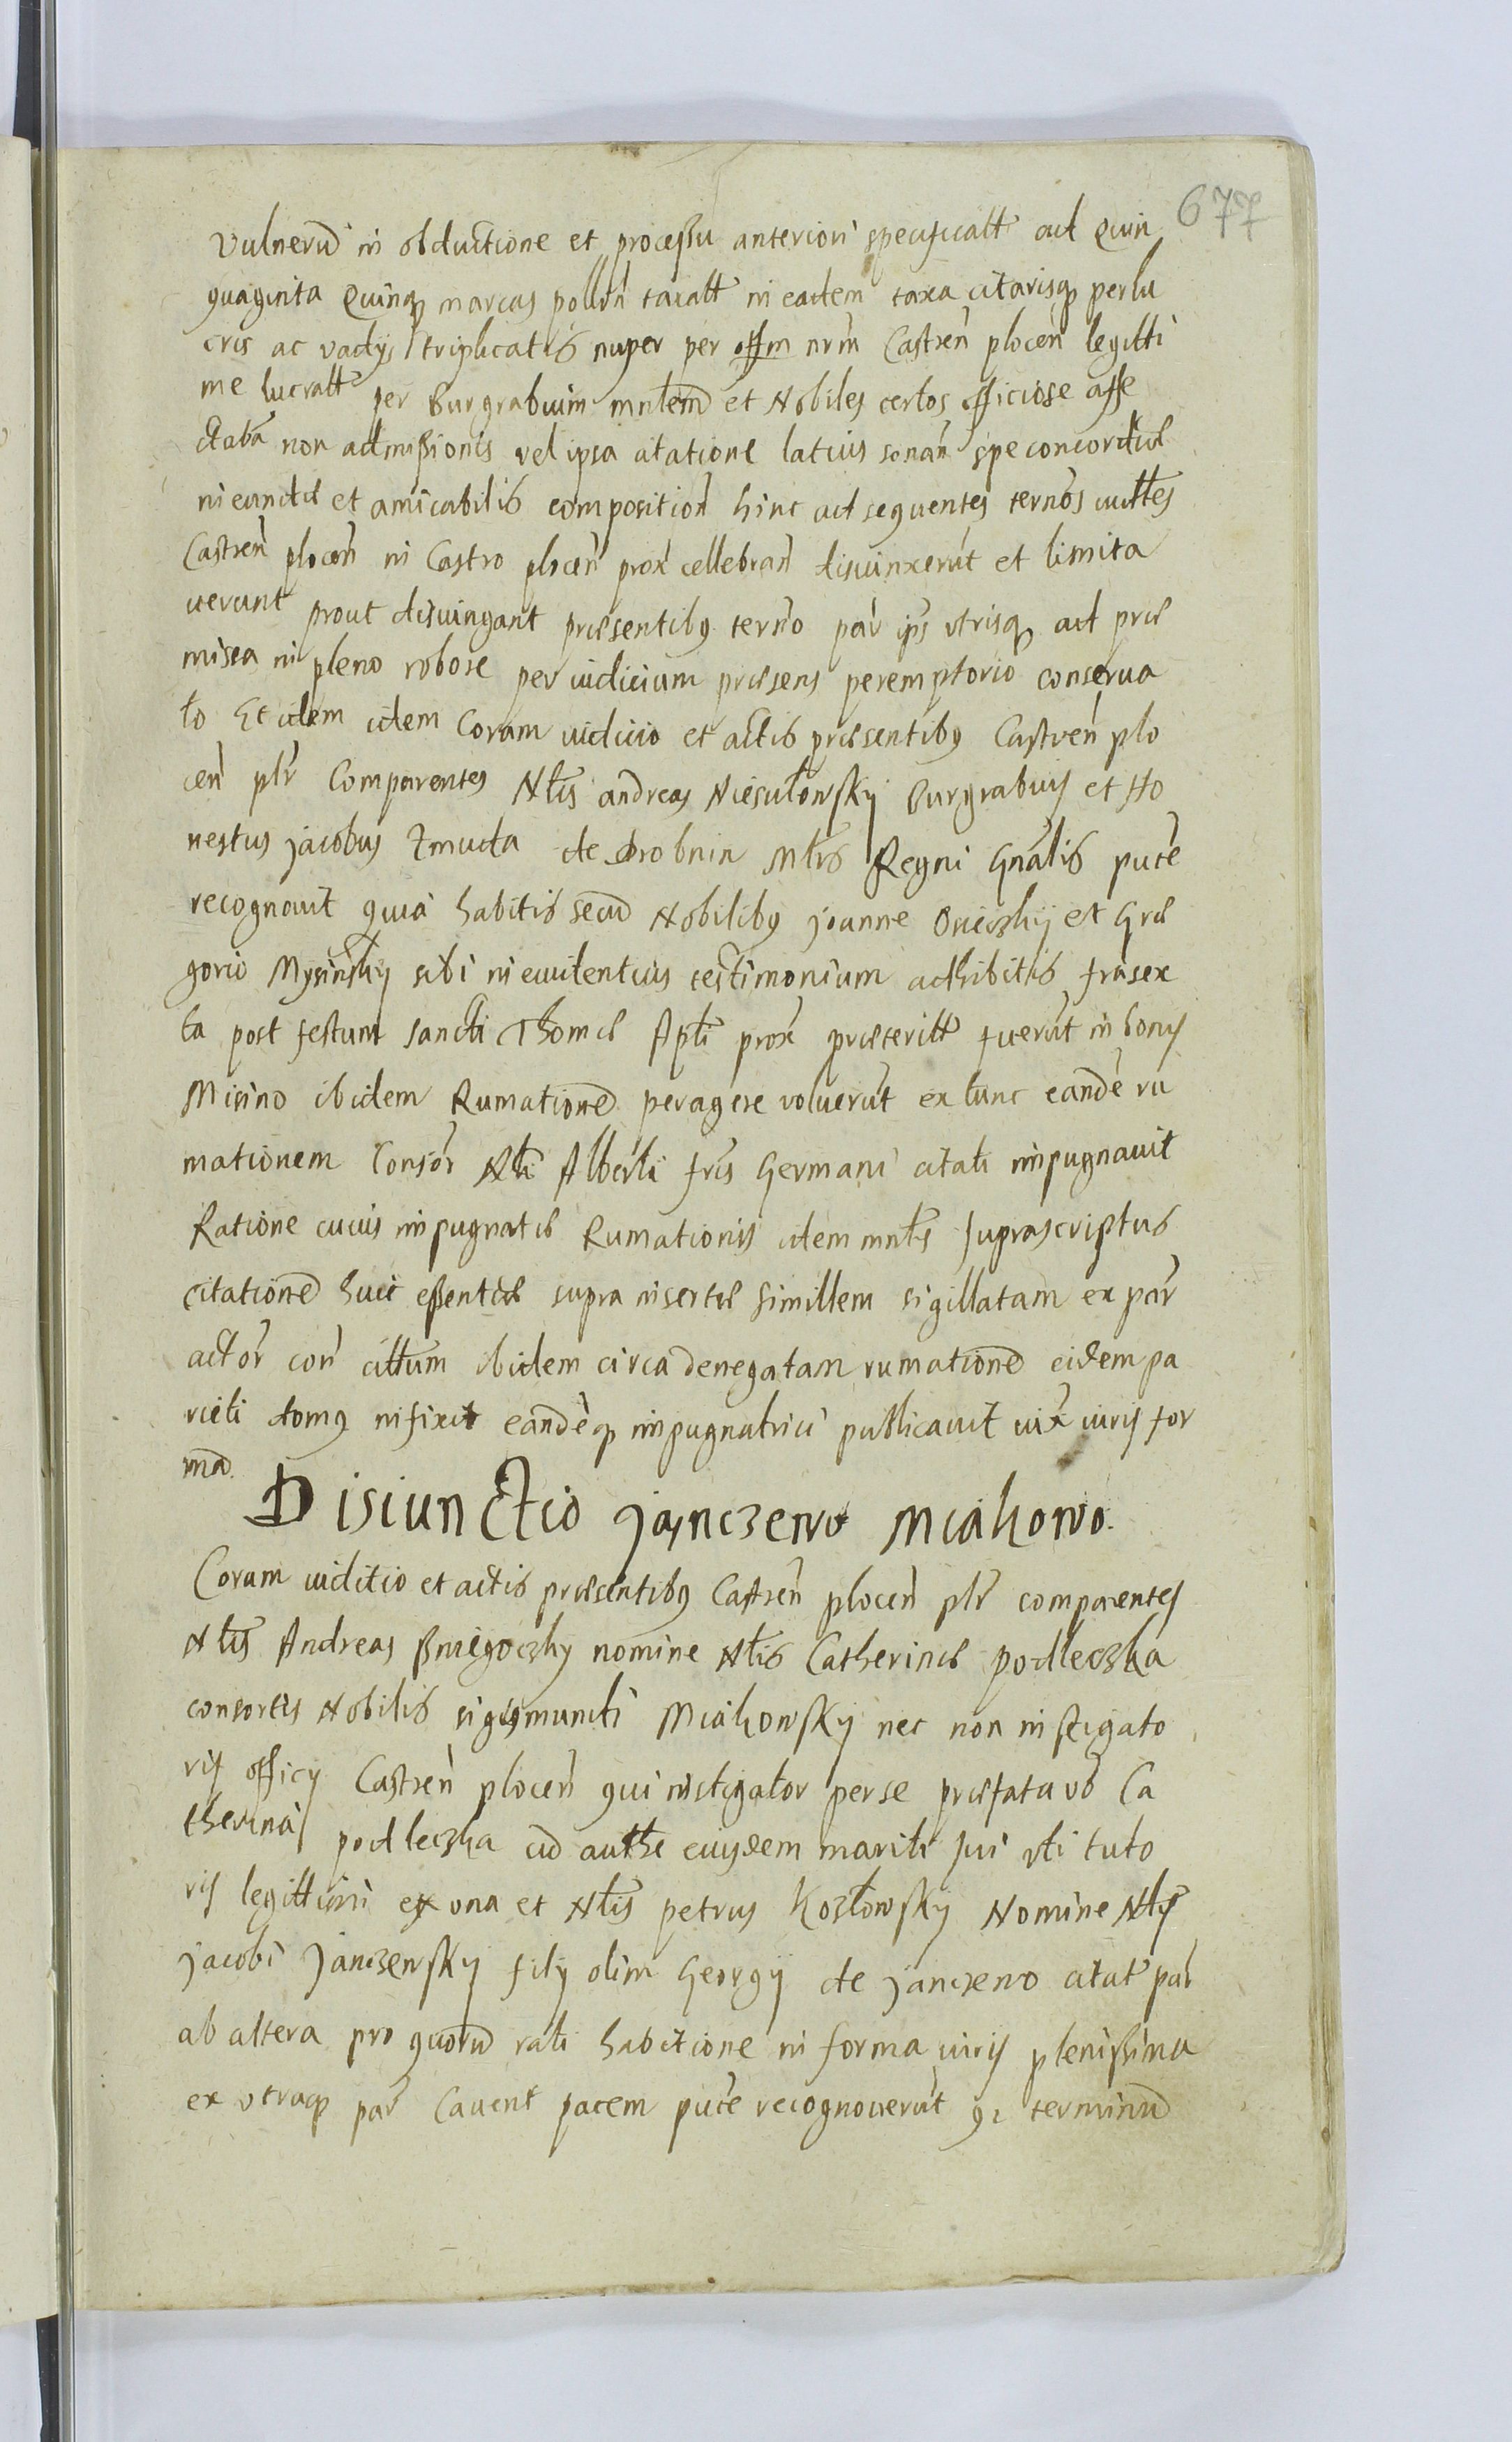 677
vulnerū in obductione et processu anteriori specificatt ad Quin
quaginta Quinq marcas pollōn taxatt in eadem taxa citatisq perlu
cris ac vadys triplicatis nuper per offm nrm Castren plocen legitti
me lucratt per Burgrabium mnlem et Nobiles certos officiose affe
ctata non admissionis vel ipsa citatione latius sonan spe concordiæ
ineundæ et amicabilis composition hinc ad sequentes ternos iuttes
Castren plocen in Castro plocen prox cellebran disiunxerūt et limita
uerunt prout disiungant præsentibq termo par ips utrisq ad præ
missa in pleno robore per iudicium præsens peremptorio conserua
to Et idem idem Coram iudicio et actis præsentibq Castren plo
cen plr Comparentes Nlis andreas Niesułowsky Burgrabius et Ho
nestus jacobus Zmuda de Drobnin Mtris Regni Gnalis pure
recognouit quia habitis secū Nobilibq joanne Osieczky et Gre
gorio Mysinsky sibi in euidentius testimonium adhibitis fra sex
ta post festum sancti Thomæ Apli prox præteritt fuerūt in bonis
Misino ibidem Rumationē peragere voluerūt ex tunc eandē ru
mationem Consor Nli Alberti fris Germani citati impugnauit
Ratione cuius impugnatæ Rumationis idem mnlis suprascriptus
citationē huic essentiæ supra insertæ simillem sigillatam ex par
actor con cittum ibidem circa denegatam rumationē eidem pa
rieti domq infixit eandēq impugnatrici publicauit iux iuris for
mā
Disiunctio janczewo Miakowo.
Coram iuditio et actis præsentibq Castren plocen plr comparentes
Nlis Andreas Sniegoczky nomine Nlis Catherinæ podleczka
consortis Nobilis sigismundi Miakowsky nec non instigato
ris officy Castren plocen qui instigator per se præfata vō Ca
therina podleczka cū authe eiusdem mariti sui uti tuto
ris legittimi ex ona et Nlis petrus Kozłowsky Nomine Nlis
jacobi Janczewsky fily olim Georgy de janczewo citat par
ab altera pro quorū rati habitione in forma iuris plenissima
ex utraq par Cauent pacem pure recognouerūt q2 terminū